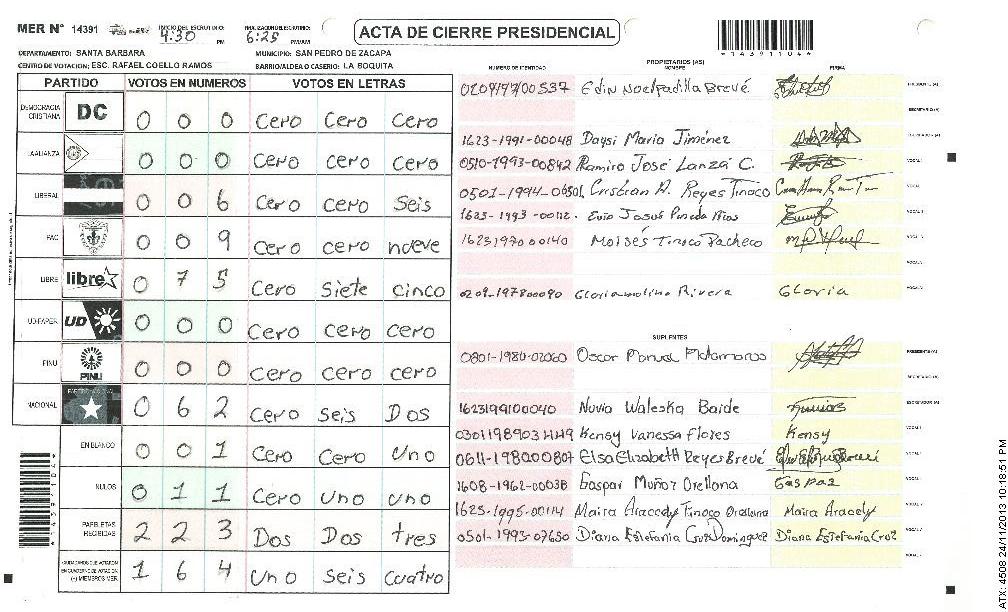 MER N° 14391 INICIO DEL ESCRUTINIO: 4:30 PM FINALIZACION ESCRUTINIO: 6:25 PM/AM
ACTA DE CIERRE PRESIDENCIAL
*14391104*
DEPARTAMENTO: SANTA BARBARA MUNICIPIO: SAN PEDRO DE ZACAPA
CENTRO DE VOTACION: ESC. RAFAEL COELLO RAMOS BARRIO/ALDEA O CASERIO: LA BOQUITA
PARTIDO VOTOS EN NUMEROS VOTOS EN LETRAS
DEMOCRACIA CRISTIANA DC 0 0 0 Cero Cero Cero
LA ALIANZA 0 0 0 Cero Cero Cero
LIBERAL 0 0 6 Cero Cero Seis
PAC 0 0 9 Cero cero nueve
LIBRE libre 0 7 5 Cero Siete cinco
UD/FAPER UD 0 0 0 Cero cero cero
PINU PINU 0 0 0 cero cero cero
NACIONAL 0 6 2 Cero Seis Dos
EN BLANCO 0 0 1 Cero Cero Uno
NULOS 0 1 1 Cero Uno uno
PAPELETAS RECIBIDAS 2 2 3 Dos Dos tres
CIUDADANOS QUE VOTARON EN CUADERNO DE VOTACION (+) MIEMBROS MER. 1 6 4 Uno Seis Cuatro
NUMERO DE IDENTIDAD PROPIETARIOS (AS) NOMBRE FIRMA
Edin Noel Padilla Brevé PRESIDENTE (A)
SECRETARIO (A)
1623-1991-00048 Daysi Maria Jiménez ESCRUTADOR (A)
0510-1993-00842 Ramiro José Lanza C. VOCAL
Cristian A. Reyes Tinoco VOCAL
1623-1993-00112. VOCAL
1623197000140 Moisés Tinoco Pacheco VOCAL
VOCAL
0209-197800090 Gloria molina Rivera Gloria VOCAL
SUPLENTES
0801-1980-02060 Oscar PRESIDENTE (A)
SECRETARIO (A)
1623199100040 Nuvia Waleska Baide ESCRUTADOR (A)
Kensy Vanessa flores Kensy VOCAL
0611-198000807 Elsa Elizabeth Reyes Brevé VOCAL
1608-1962-00038 Gaspar Muñoz Orellana Gaspar VOCAL
1623-1995-00114 Maira Aracedy Tinoco Orellana Maira Aracedy VOCAL
0501-1993-07650 Diana Estefania Cruz Dominguez Diana Estefania Cruz VOCAL
VOCAL
ATX: 4508 24/11/2013 10:18:51 PM